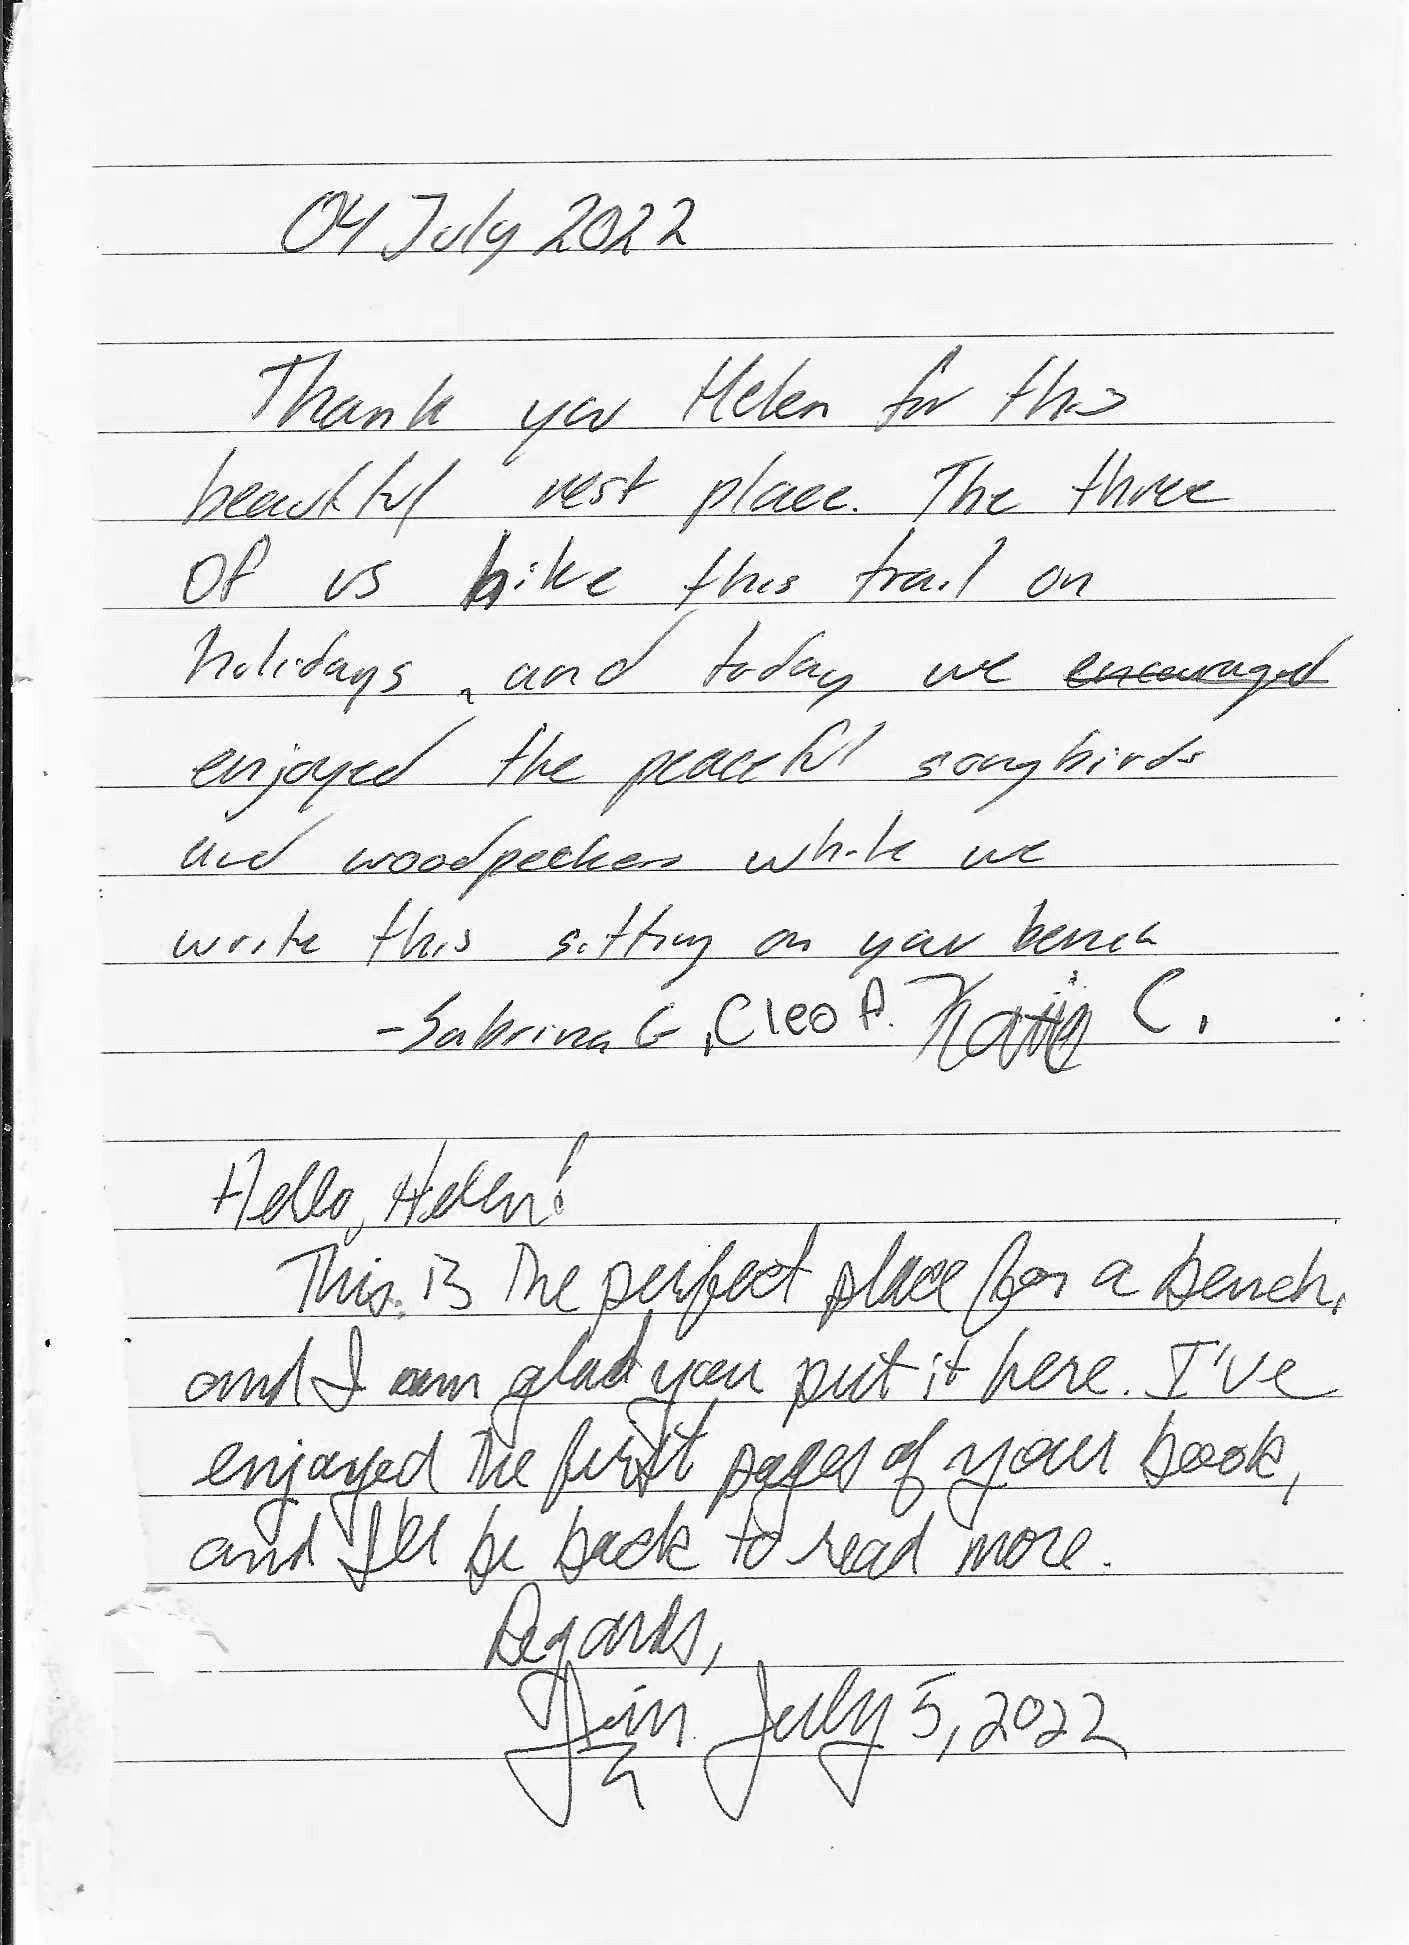 04 July 2022
Thank you Helen for this
beautiful rest place. The three
of us hike this trail on
holidays, and today we encouraged
enjoyed the peaceful songbirds
and woodpeckers while we
write this sitting on your bench
-Sabrina G, Cleo P. C.
Hello, Helen!
This is the perfect place for a bench,
and I am glad you put it here. I've
enjoyed the first pages of your book,
and I'll be back to read more.
Regards,
Jim July 5, 2022